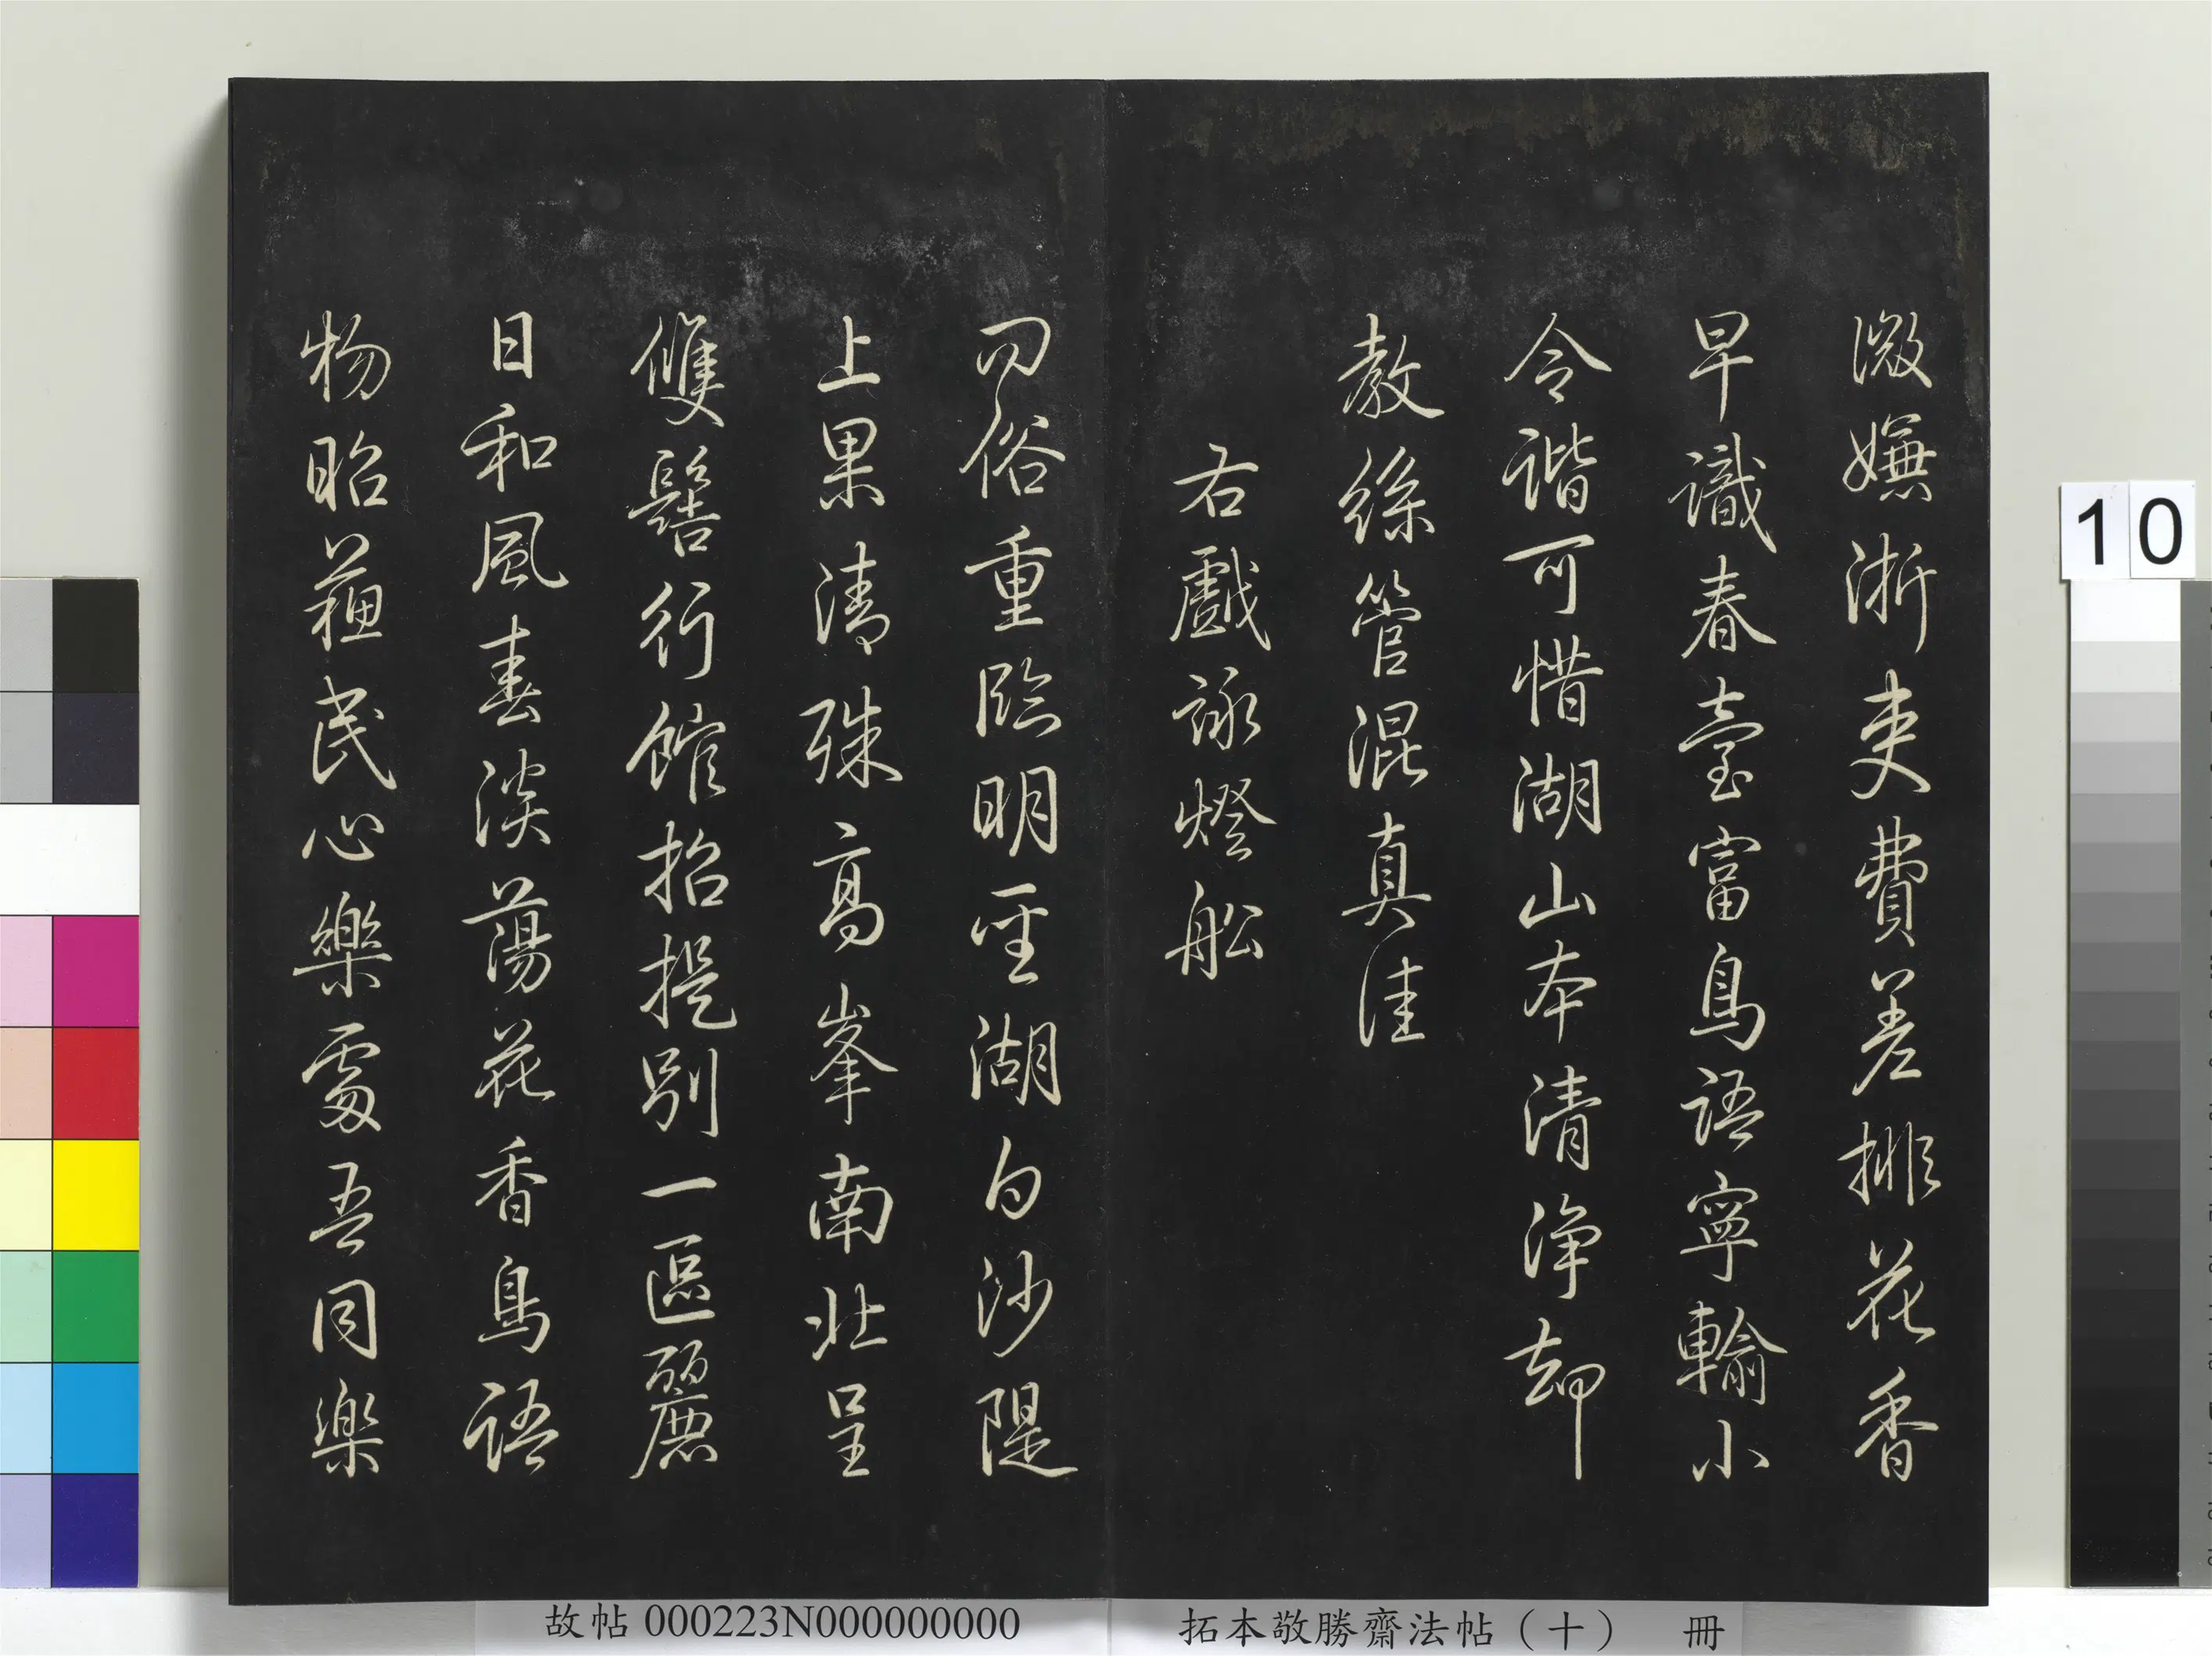 微嫌浙吏費差排花香
早識春臺富鳥語寧輸小
令諧可惜湖山本清淨却
教絲管混真佳
右戲詠燈船
問俗重臨明聖湖白沙隄
上果清殊高峯南北呈
雙髻行館招提別一區麗
日和風春淡蕩花香鳥語
物昭蘇民心樂處吾同樂
10
故帖 000223N000000000
拓本敬勝齋法帖（十） 冊